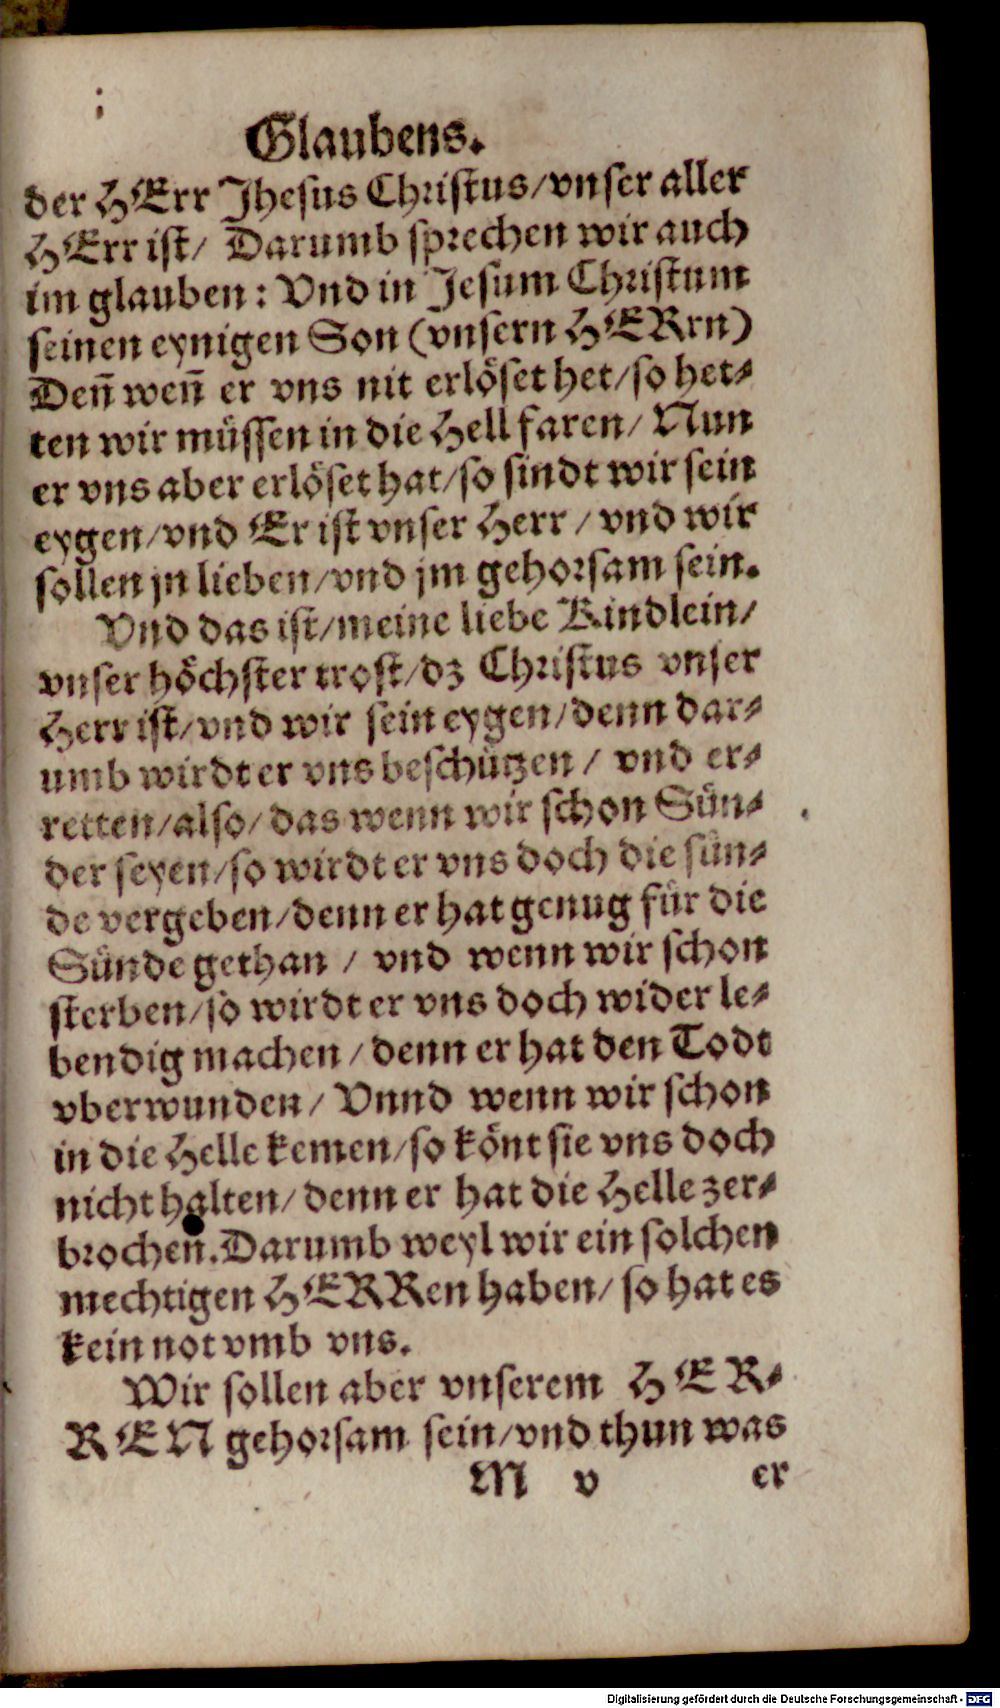 Glaubens.
der HErr Jhesus Christus/vnser aller
HErr ist/ Darumb sprechen wir auch
im glauben: Vnd in Jesum Christum
seinen eynigen Son (vnsern HERrn)
Den̄ wen̄ er vns nit erlöset het/so het-
ten wir müssen in die Hell faren/ Nun
er vns aber erlöset hat/so sindt wir sein
eygen/vnd Er ist vnser Herr / vnd wir
sollen jn lieben/vnd jm gehorsam sein.
Vnd das ist/meine liebe Kindlein/
vnser höchster trost/dz Christus vnser
Herr ist/vnd wir sein eygen/denn dar-
umb wirdt er vns beschützen / vnd er-
retten/also/das wenn wir schon Sün-
der seyen/so wirdt er vns doch die sün-
de vergeben/denn er hat genug für die
Sünde gethan / vnd wenn wir schon
sterben/so wirdt er vns doch wider le-
bendig machen/denn er hat den Todt
vberwunden/ Vnnd wenn wir schon
in die Helle kemen/so könt sie vns doch
nicht halten/denn er hat die Helle zer-
brochen. Darumb weyl wir ein solchen
mechtigen HERRen haben/ so hat es
kein not vmb vns.
Wir sollen aber vnserem HER-
REN gehorsam sein/vnd thun was
M v er
Digitalisierung gefördert durch die Deutsche Forschungsgemeinschaft - DFG